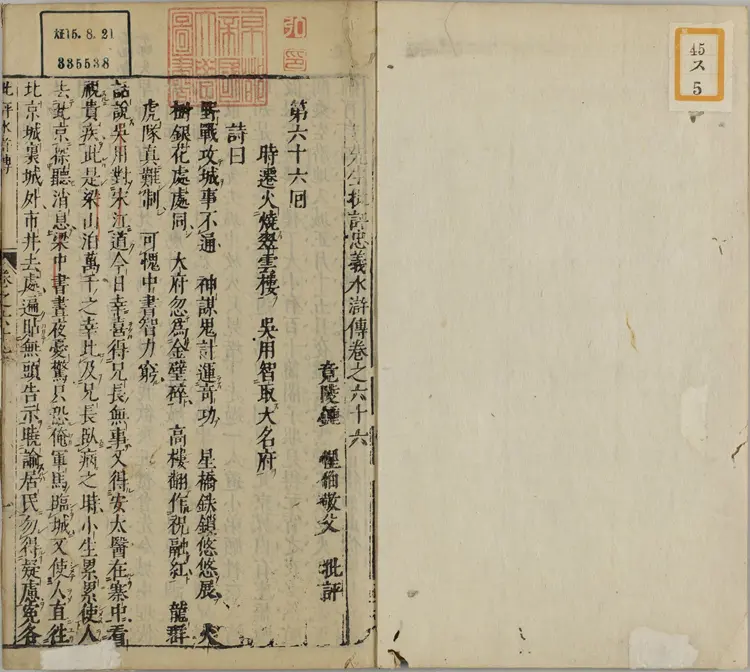 45
ス
5
大15.8.21
335538
先生批評忠義水滸傳卷之六十六
竟陵鍾 惺伯敬父 批評
第六十六回
時遷火燒翠雲樓 吳用智取大名府
詩曰
野戰攻城事不通 神謀鬼計運奇功 星橋鉄鎖悠悠展 火
樹銀花處處同 大府忽爲金璧碎 高樓翻作祝融紅 龍群
虎隊真難制 可愧中書智力窮
話說吳用對宋江道今日幸喜得兄長無事又得安太醫在寨中看
視貴疾此是梁山泊萬千之幸比及兄長臥病之時小生累累使人
去北京探聽消息梁中書晝夜憂驚只恐俺軍馬臨城又使人直徃
北京城裏城外市井去處遍貼無頭告示曉諭居民勿得疑慮冤各
批評水滸傳